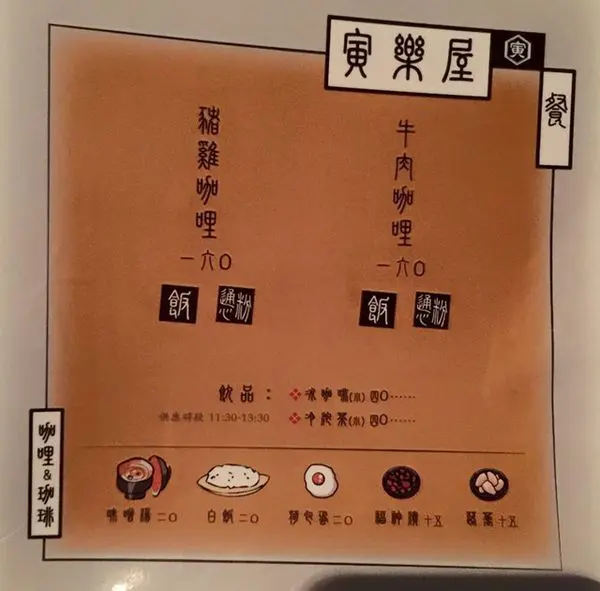 寅樂屋
寅
餐
牛肉咖哩
一六〇
飯 通心粉
豬雞咖哩
一六〇
飯 通心粉
飲品：
供應時段 11:30-13:30
❖冰咖啡(小) 四〇⋯⋯
❖冷泡茶(小) 四〇⋯⋯
咖哩&珈琲
味噌湯 二〇
白飯 二〇
荷包蛋 二〇
福神漬 十五
蕗蕎 十五